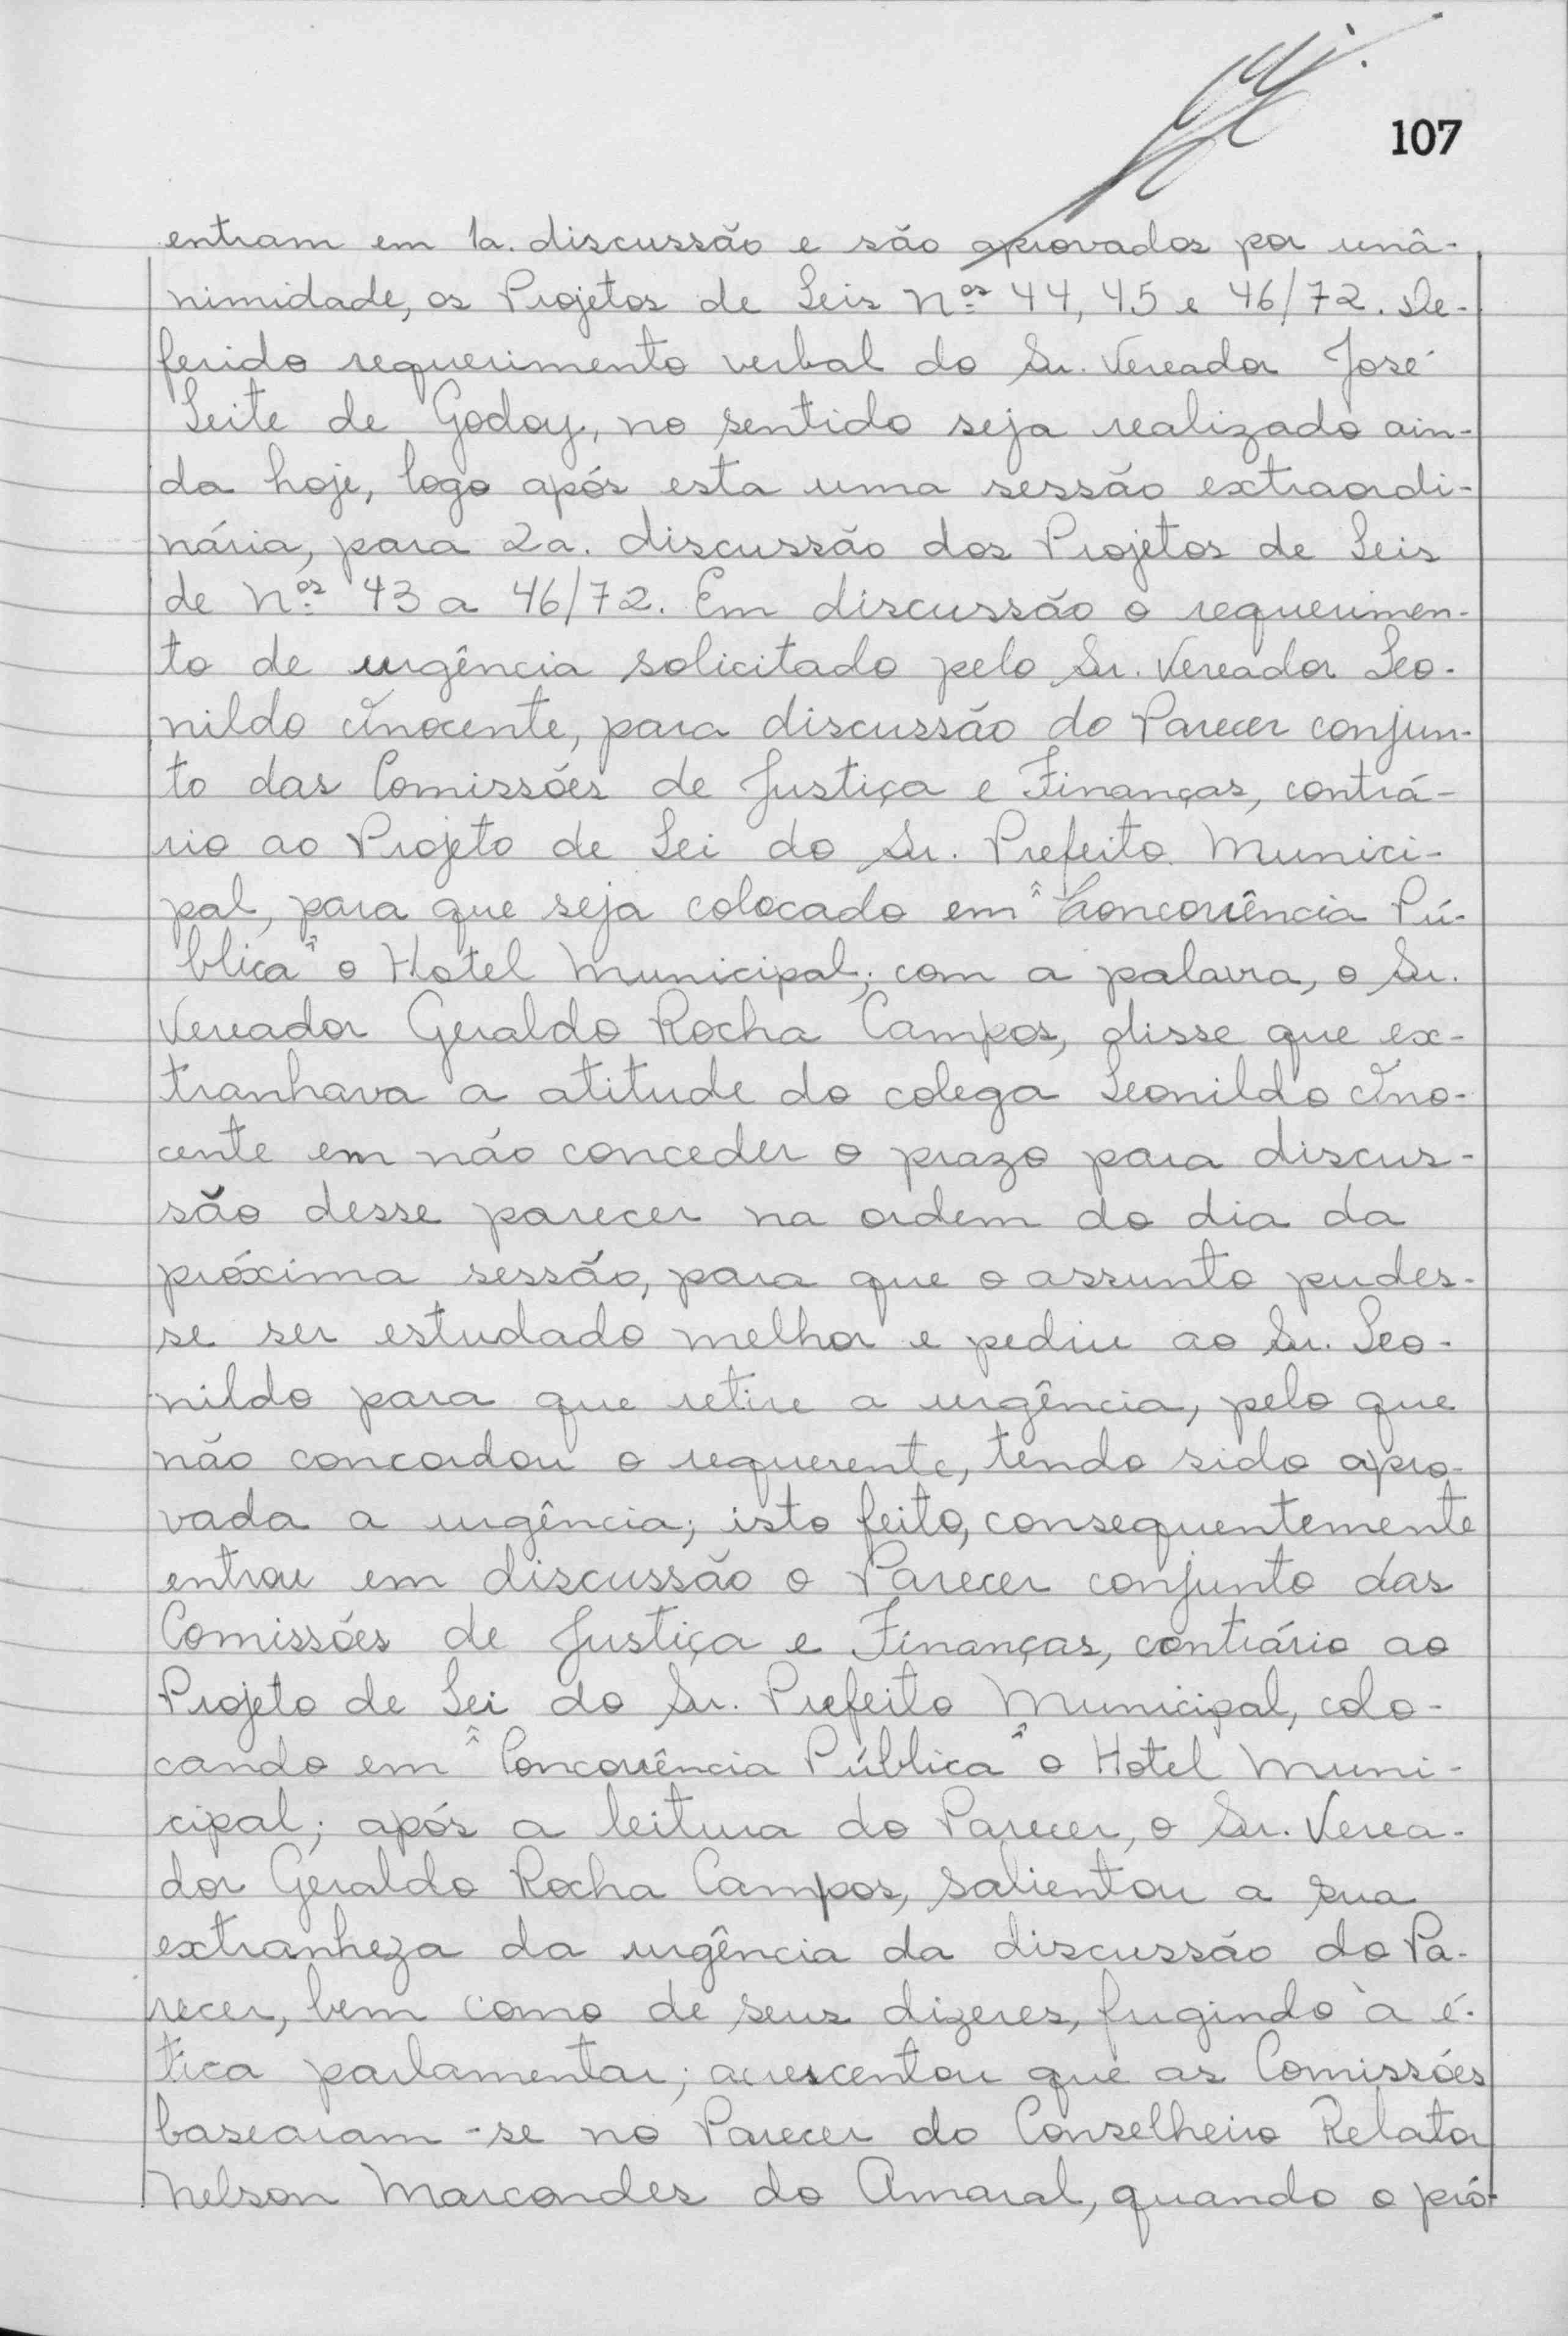 107
entram em 1a. discussão e são aprovados por unâ-
nimidade, os Projetos de Leis nos. 44, 45 e 46/72. De-
ferido requerimento verbal do Sr. Vereador José
Leite de Godoy, no sentido seja realizado ain-
da hoje, logo após esta uma sessão extraordi-
nária, para 2a. discussão dos Projetos de Leis
de nos. 43 a 46/72. Em discussão o requerimen-
to de urgência solicitado pelo Sr. Vereador Leo-
nildo Inocente, para discussão do Parecer conjun-
to das Comissões de Justiça e Finanças, contrá-
rio ao Projeto de Lei do Sr. Prefeito Munici-
pal, para que seja colocado em "Concorrência Pú-
blica" o Hotel Municipal; com a palavra, o Sr.
Vereador Geraldo Rocha Campos, disse que ex-
tranhava a atitude do colega Leonildo Ino-
cente em não conceder o prazo para discus-
são desse parecer na ordem do dia da
próxima sessão, para que o assunto pudes-
se ser estudado melhor e pediu ao Sr. Leo-
nildo para que retire a urgência, pelo que
não concordou o requerente, tendo sido apro-
vada a urgência; isto feito, consequentemente
entrou em discussão o Parecer conjunto das
Comissões de Justiça e Finanças, contrário ao
Projeto de Lei do Sr. Prefeito Municipal, colo-
cando em "Concorrência Pública" o Hotel Muni-
cipal; após a leitura do Parecer, o Sr. Verea-
dor Geraldo Rocha Campos, salientou a sua
extranheza da urgência da discussão do Pa-
recer, bem como de seus dizeres, fugindo à é-
tica parlamentar; acrescentou que as Comissões
basearam-se no Parecer do Conselheiro Relator
Nelson Marcondes do Amaral, quando o pró-